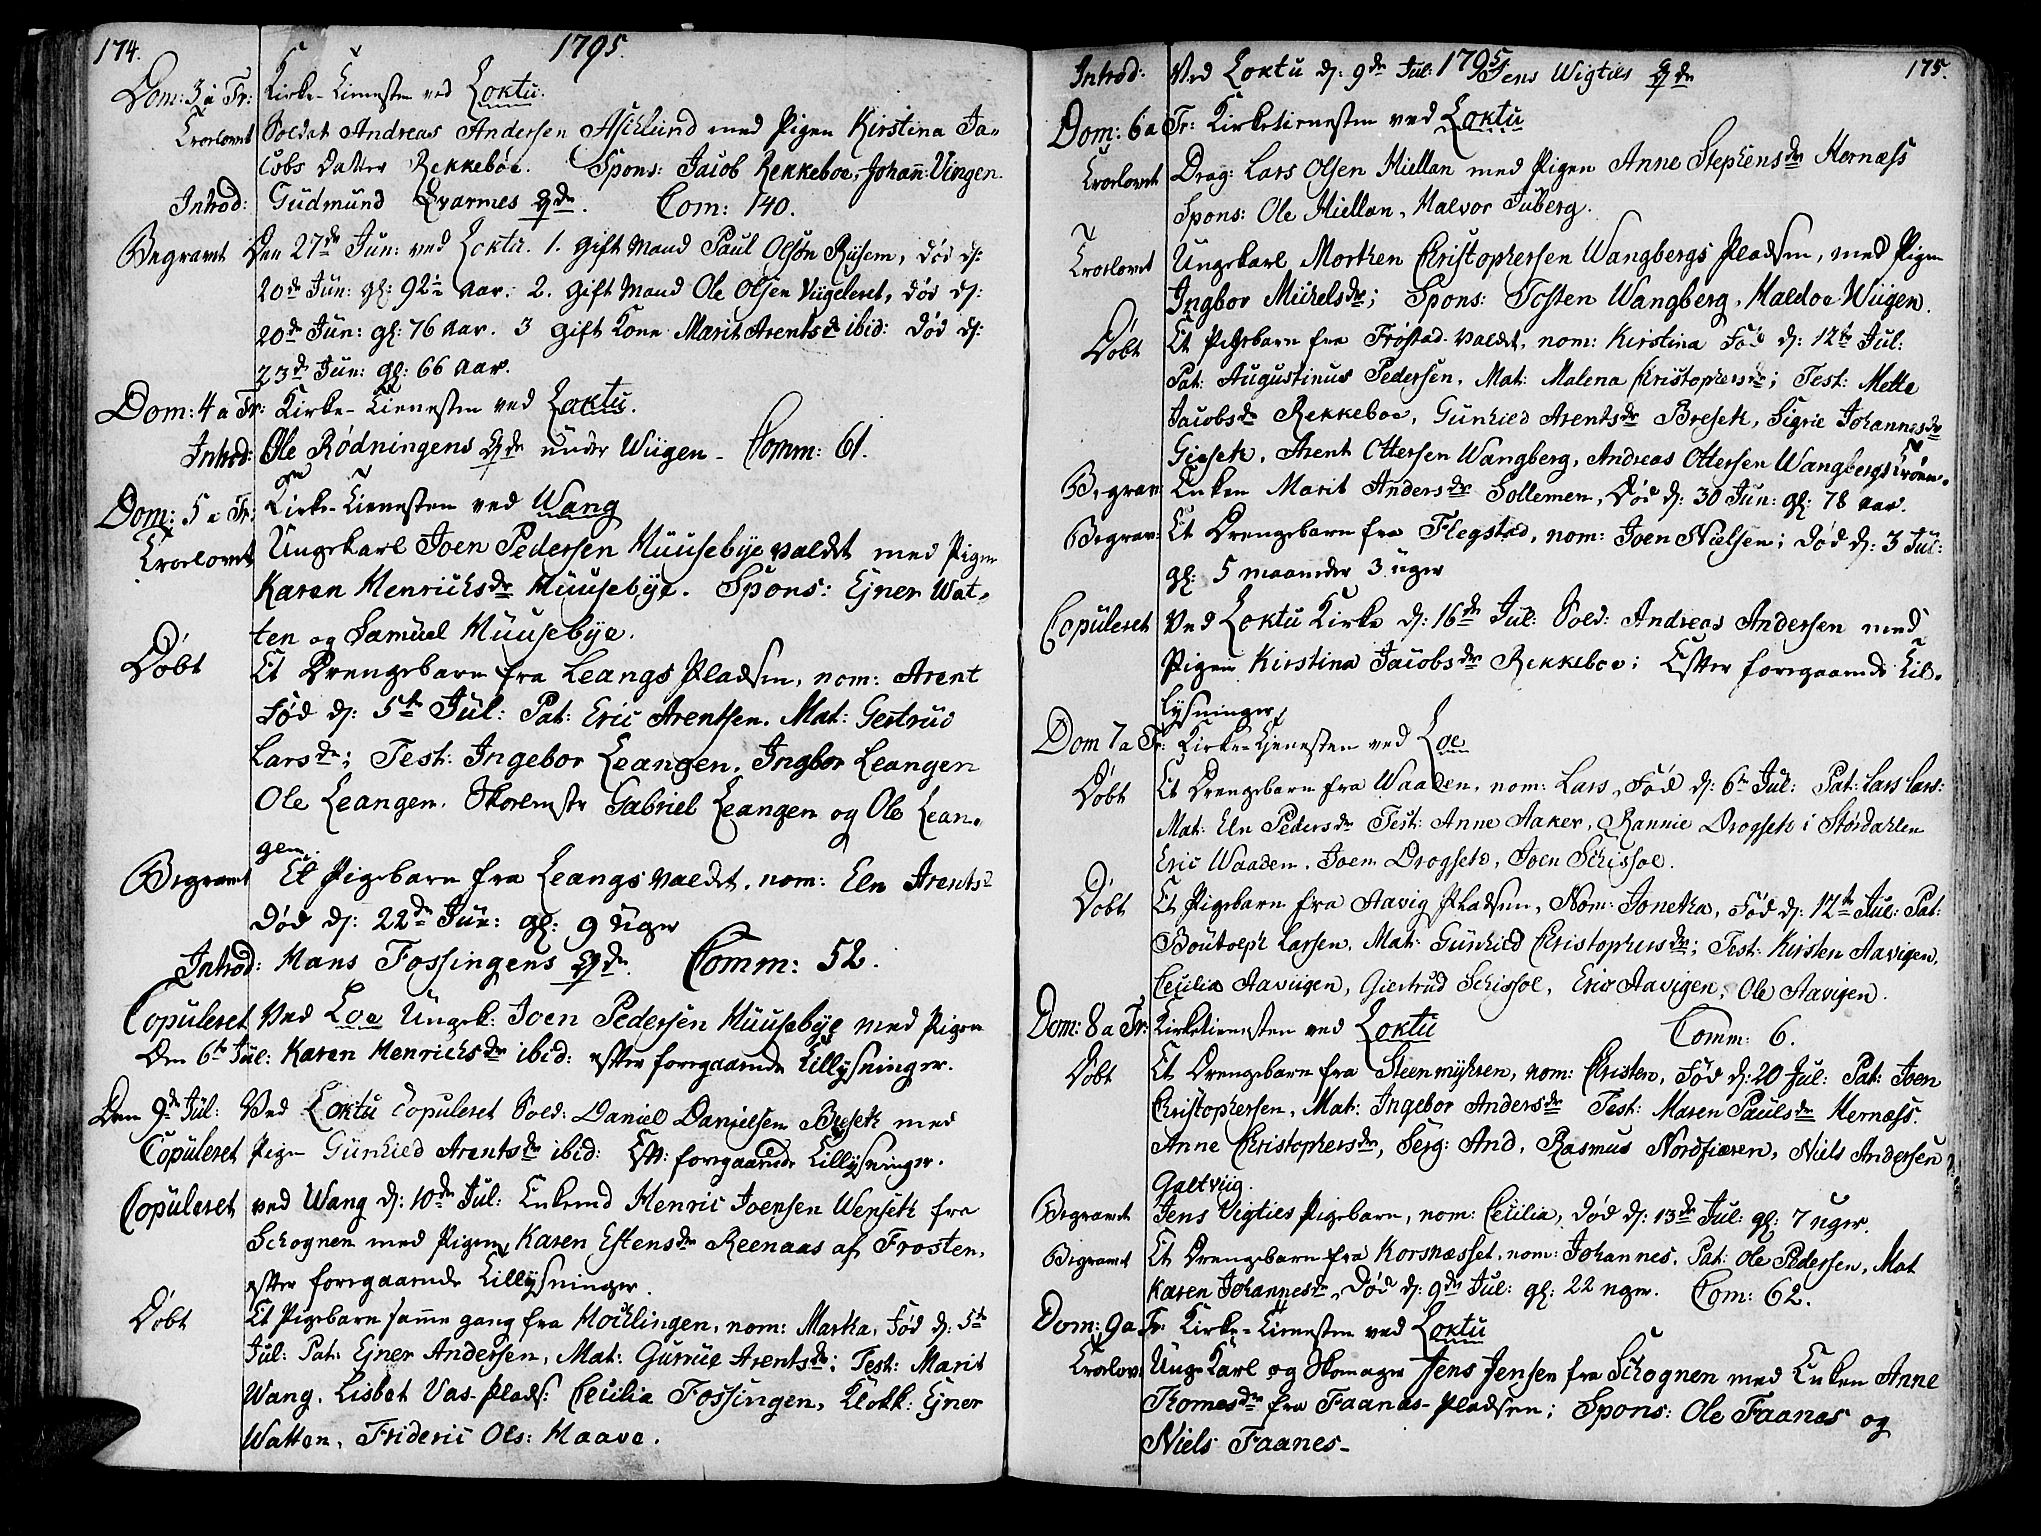 174.
1795.
Dom: 3 a Tr: Kirke-Tienesten ved Loktu.
Trorlovet Soldat Andreas Andersen Aschlund med Pigen Kirstina Ja-
cobs Datter Rekkeboe. Spons: Jacob Rekkeboe, Johan: Vingen.
Introd: Gudmund Evarmes Qde. Com: 140.
Begravet Den 27de Jun: ved Loktu. 1. Gift Mand Paul Olsøn Rusem, død d:
20de Jun: gl: 92 1/2 aar. 2. Gift Mand Ole Olsen Viigeleret, død d:
20de Jun: gl: 76 aar. 3 gift Kone Marit Arentsdr ibid: død d:
23de Jun: gl: 66 aar.
Dom: 4 a Tr: Kirke-Tienesten ved Loktu.
Introd: Ole Rødningens Qde under Wiigen - Comm: 61.
Dom: 5 a Tr: Kirke-Tienesten ved Wang
Trorlovet Ungekarl Joen Pedersen Muusebye valdet med Pigen
Karen Henrichsdr Muusebye. Spons: Ejner Wat-
ten og Samuel Muusebye.
Døbt Et Drengebarn fra Leangs Pladsen, nom: Arent
Fød d: 5te Jul: Pat: Eric Arentsen. Mat: Gertrud
Larsdr; Test: Ingebor Leangen. Ingbor Leangen
Ole Leangen. Skolemstr Gabriel Leangen og Ole Lean-
gen.
Begravet Et Pigebarn fra Leangs valdet. nom: Eln Arents
Død d: 22de Jun: gl: 9 uger
Introd: Hans Fossingens Qde. Comm: 52.
Copuleret Ved Loe Ungek: Joen Pedersen Muusebye med Pigen
Den 6te Jul: Karen Henrichsdr ibid: efter foregaaende Tillysninger.
Den 9de Jul: Ved Loktu Copuleret Sold: Daniel Danielsen Breseth med
Copuleret Pigen Gunhied Arentsdr ibid: Eft: foregaaende Tillysninger.
Copuleret ved Wang d: 10de Jul: Enkemd Henric Joensen Wenseth fra
Schognen med Pigen Karen Estensdr Reenaas af Frosten,
efter foregaaende Tillysninger.
Døbt Et Pigebarn samme gang fra Hochlingen, nom: Martha, Fød d: 5te
Jul: Pat: Ejner Andersen, Mat: Gurrue Arentsdr; Test: Marit
Wang. Lisbet Vas-Plads: Cecilia Fossingen, Klokk: Ejner
Watten, Frideric Ols: Haave.
1795
175.
Introd: Ved Loktu d: 9de Jul: Jens Wigties Qde
Dom: 6 a Tr: Kirketienesten ved Loktu
Trorlovet Drag: Lars Olsen Hiellan med Pigen Anne Stephensdr Hernæss
Spons: Ole Hiellan, Halvor Juberg.
Trorlovet Ungekarl Morthen Christophersen Wangbergs Pladsen, med Pigen
Ingbor Michelsdr; Spons: Tosten Wangberg, Haldoe Wiigen.
Døbt Et Pigebarn fra Frøstad-valdet, nom: Kirstina Fød d: 12te Jul:
Pat: Augustinus Pedersen, Mat: Malena Christophersdr; Test: Mette
Jacobsdr Rekkeboe, Gunhied Arentsdr Breseth, Sigrie Johannesdr
Gieseth, Arent Ottersen Wangberg, Andreas Ottersen Wangbergs
Begrav: Enken Marit Andersdr Sollemen, Død d: 30 Jun: gl: 78 aar.
Begrav: Et Drengebarn fra Flegstad, nom: Joen Nielsen; død d: 3 Jul:
gl: 5 maaneder 3 uger
Copuleret Ved Loktu Kirke d: 16de Jul: Sold: Andreas Andersen med
Pigen Kirstina Jacobsdr Rekkeboe; Efter foregaaende Til-
lysninger
Dom 7 a Tr: Kirke-Tjenesten ved Loe
Døbt Et Drengebarn fra Waaden, nom: Lars, Fød d: 6te Jul: Pat: Lars Lars:
Mat: Eln Pedersdr Test: Anne Aaker, Rannie Drogseth i Størdahlen
Eric Waaden, Joen Drogseth, Joen Schissoe.
Døbt Et Pigebarn fra Aavig Pladsen, Nom: Jonetha, Fød d: 12te Jul: Pat:
Boutoeph Larsen, Mat: Gunhied Christophersdr; Test: Kirsten Aavigen,
Cecilia Aaviigen, Giertrud Schissoe, Eric Aavigen, Ole Aavigen.
Dom: 8 a Tr: Kirketienesten ved Loktu Comm: 6.
Døbt Et Drengebarn fra Steenmyhren, nom: Christen, Fød d: 20 Jul: Pat: Joen
Christophersen, Mat: Ingebor Andersdr Test: Maren Paulsdr Hernæss.
Anne Christophersdr, Serg: And. Rasmus Nordfiæren, Niels Andersen
Galtviig.
Begravet Jens Vigties Pigebarn, nom: Cecilia, død d: 13de Jul: gl: 7 uger.
Begravet Et Drengebarn fra Korsnæsset, nom: Johannes, Pat: Ole Pedersen, Mat
Karen Johannesdr, Død d: 9de Jul: gl: 22 uger. Com: 62.
Dom: 9 a Tr: Kirke-Tienesten ved Loktu
Trorlov: Unge Karl og Skomager Jens Jensen fra Schognen med Enken Anne
Thomesdr fra Faanes-Pladsen; Spons: Ole Faanes og
Niels Faanes-